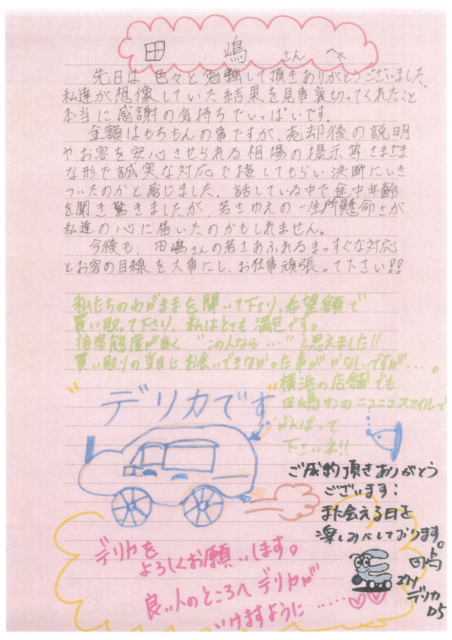 田嶋さんへ
先日は色々と勉強して頂きありがとうございました。
私達が想像していた結果を見事裏切ってくれたこと
本当に感謝の気持ちでいっぱいです。
金額はもちろんの事ですが、売却後の説明
やお客を安心させられる相場の提示等さまざま
な形で誠実な対応で接してもらい決断にいき
ついたのかと感じました。話している中で途中年齢
を聞き驚きましたが、若さゆえの一生懸命さが
私達の心に届いたのかもしれません。
今後も、田嶋さんの若さあふれるまっすぐな対応
とお客の目線を大事にし、お仕事頑張って下さい!!
私たちのわがままを聞いて下さり、希望額で
買い取って下さり、私はとても満足です。
接客態度が良く "この人なら…" と思えました!!
買い取りの当日にお会いできなかった事がかなしいですが…。
横浜の店舗でも
田嶋サンのニコニコスマイルで
がんばって
下さいネ!!
"デリカです"
ご成約頂きありがとう
ございます!
また会える日を
楽しみにしております。
田嶋
デリカ
D5
デリカを
よろしくお願いします。
良い人のところへデリカが
いけますように……